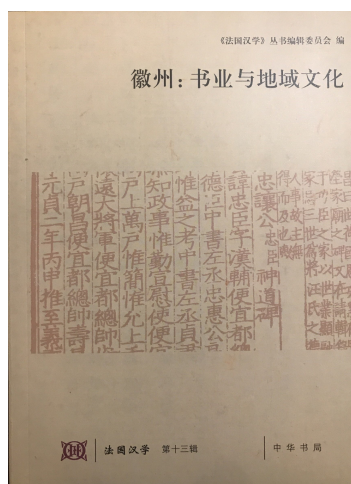 《法国汉学》丛书编辑委员会 编
徽州：书业与地域文化
忠讓公忠臣神道碑
諱忠臣字漢輔便宜都總
德江中書左丞忠惠公
惟益之考中書左丞貞
知政事惟勤宣慰使便宜
戶上萬戶惟簡 允上千
遠大將軍便宜都總帥
戶朝昌便宜都總帥壽
元貞二年丙申推至義
法国汉学 第十三辑
中华书局